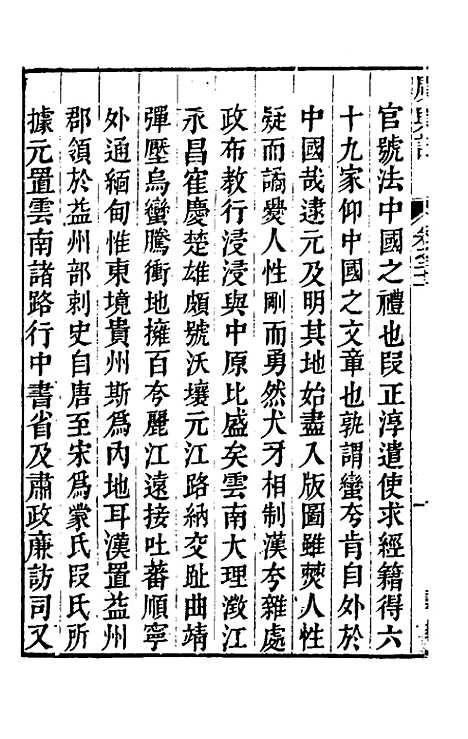 官號法中國之禮也段正淳遣使求經籍得六
十九家仰中國之文章也孰謂蠻夸肯自外於
中國哉逮元及明其地始盡入版圖雖僰人性
疑而譎爨人性剛而勇然犬牙相制漢夸雜處
政布教行浸浸與中原比盛矣雲南大理澂江
永昌寉慶楚雄頗號沃壤元江路納交趾曲靖
彈壓烏蠻騰衝地擁百夸麗江遠接吐蕃順寧
外通緬甸惟東境貴州斯爲內地耳漢置益州
郡領於益州部刺史自唐至宋爲蒙氏段氏所
據元置雲南諸路行中書省及肅政廉訪司又